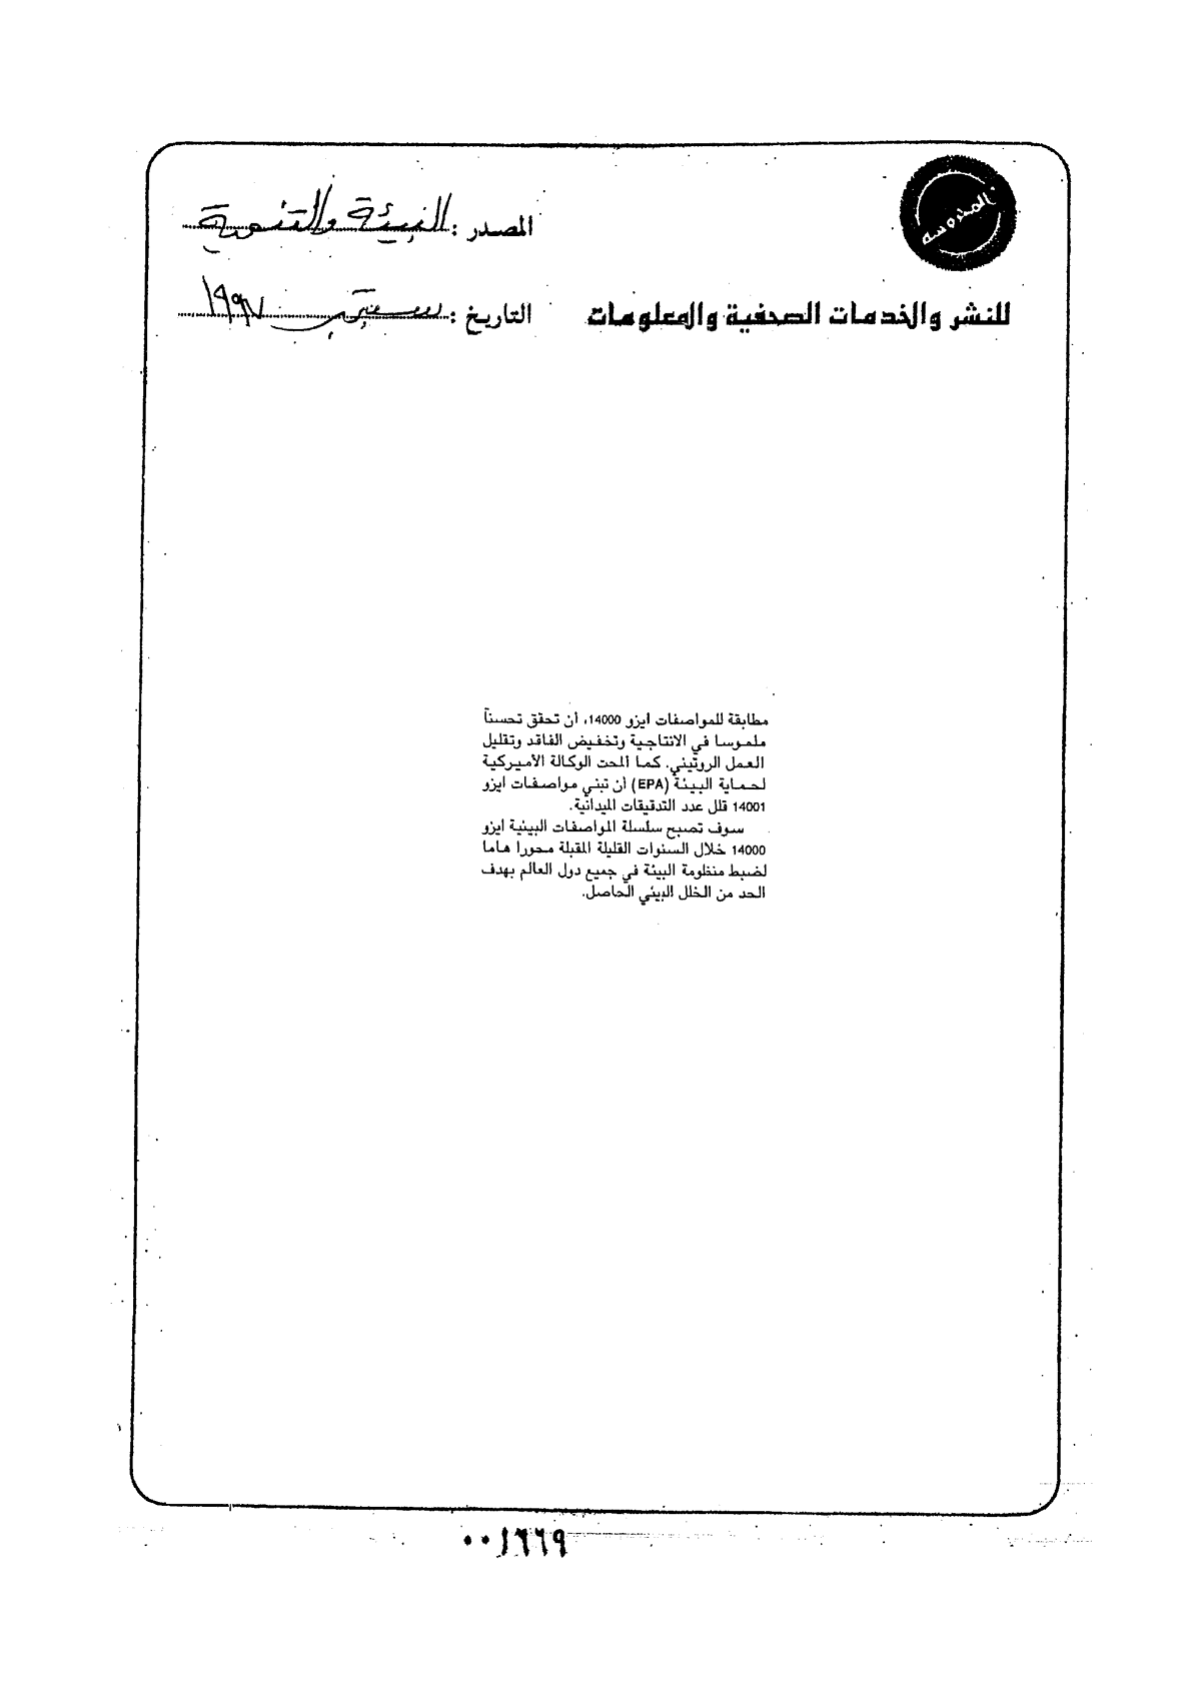 المحروسة
المصدر : البيئة والتنمية
للنشر والخدمات الصحفية والمعلومات
التاريخ : سبتمبر ١٩٩٧
مطابقة للمواصفات ايزو 14000، أن تحقق تحسناً
ملموسا في الانتاجية وتخفيض الفاقد وتقليل
العمل الروتيني. كما ألمحت الوكالة الأميركية
لحماية البيئة (EPA) أن تبني مواصفات ايزو
14001 قلل عدد التدقيقات الميدانية.
سوف تصبح سلسلة المواصفات البيئية ايزو
14000 خلال السنوات القليلة المقبلة محورا هاما
لضبط منظومة البيئة في جميع دول العالم بهدف
الحد من الخلل البيئي الحاصل.
٠٠١٦٦٩